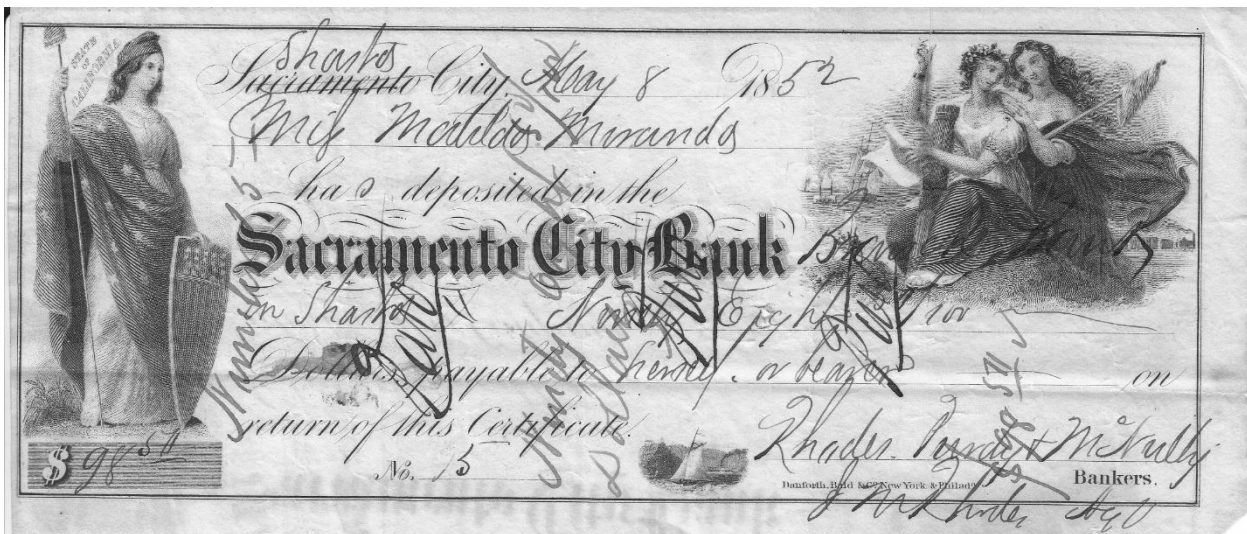 STATE OF CALIFORNIA
Shasta
Sacramento City, May 8 1852
Miss Matilda Miranda
has deposited in the
Sacramento City Bank Branch Bank
in Shasta Ninety Eight 50/100
Dollars, payable to herself or bearer on
return of this Certificate.
$ 98 50
No. 15
Rhodes Purdy & McNulty
Danforth, Bald & Co. New York & Philada.
Bankers.
J M Rhodes Agt
Number 5
Ninety
$98 50